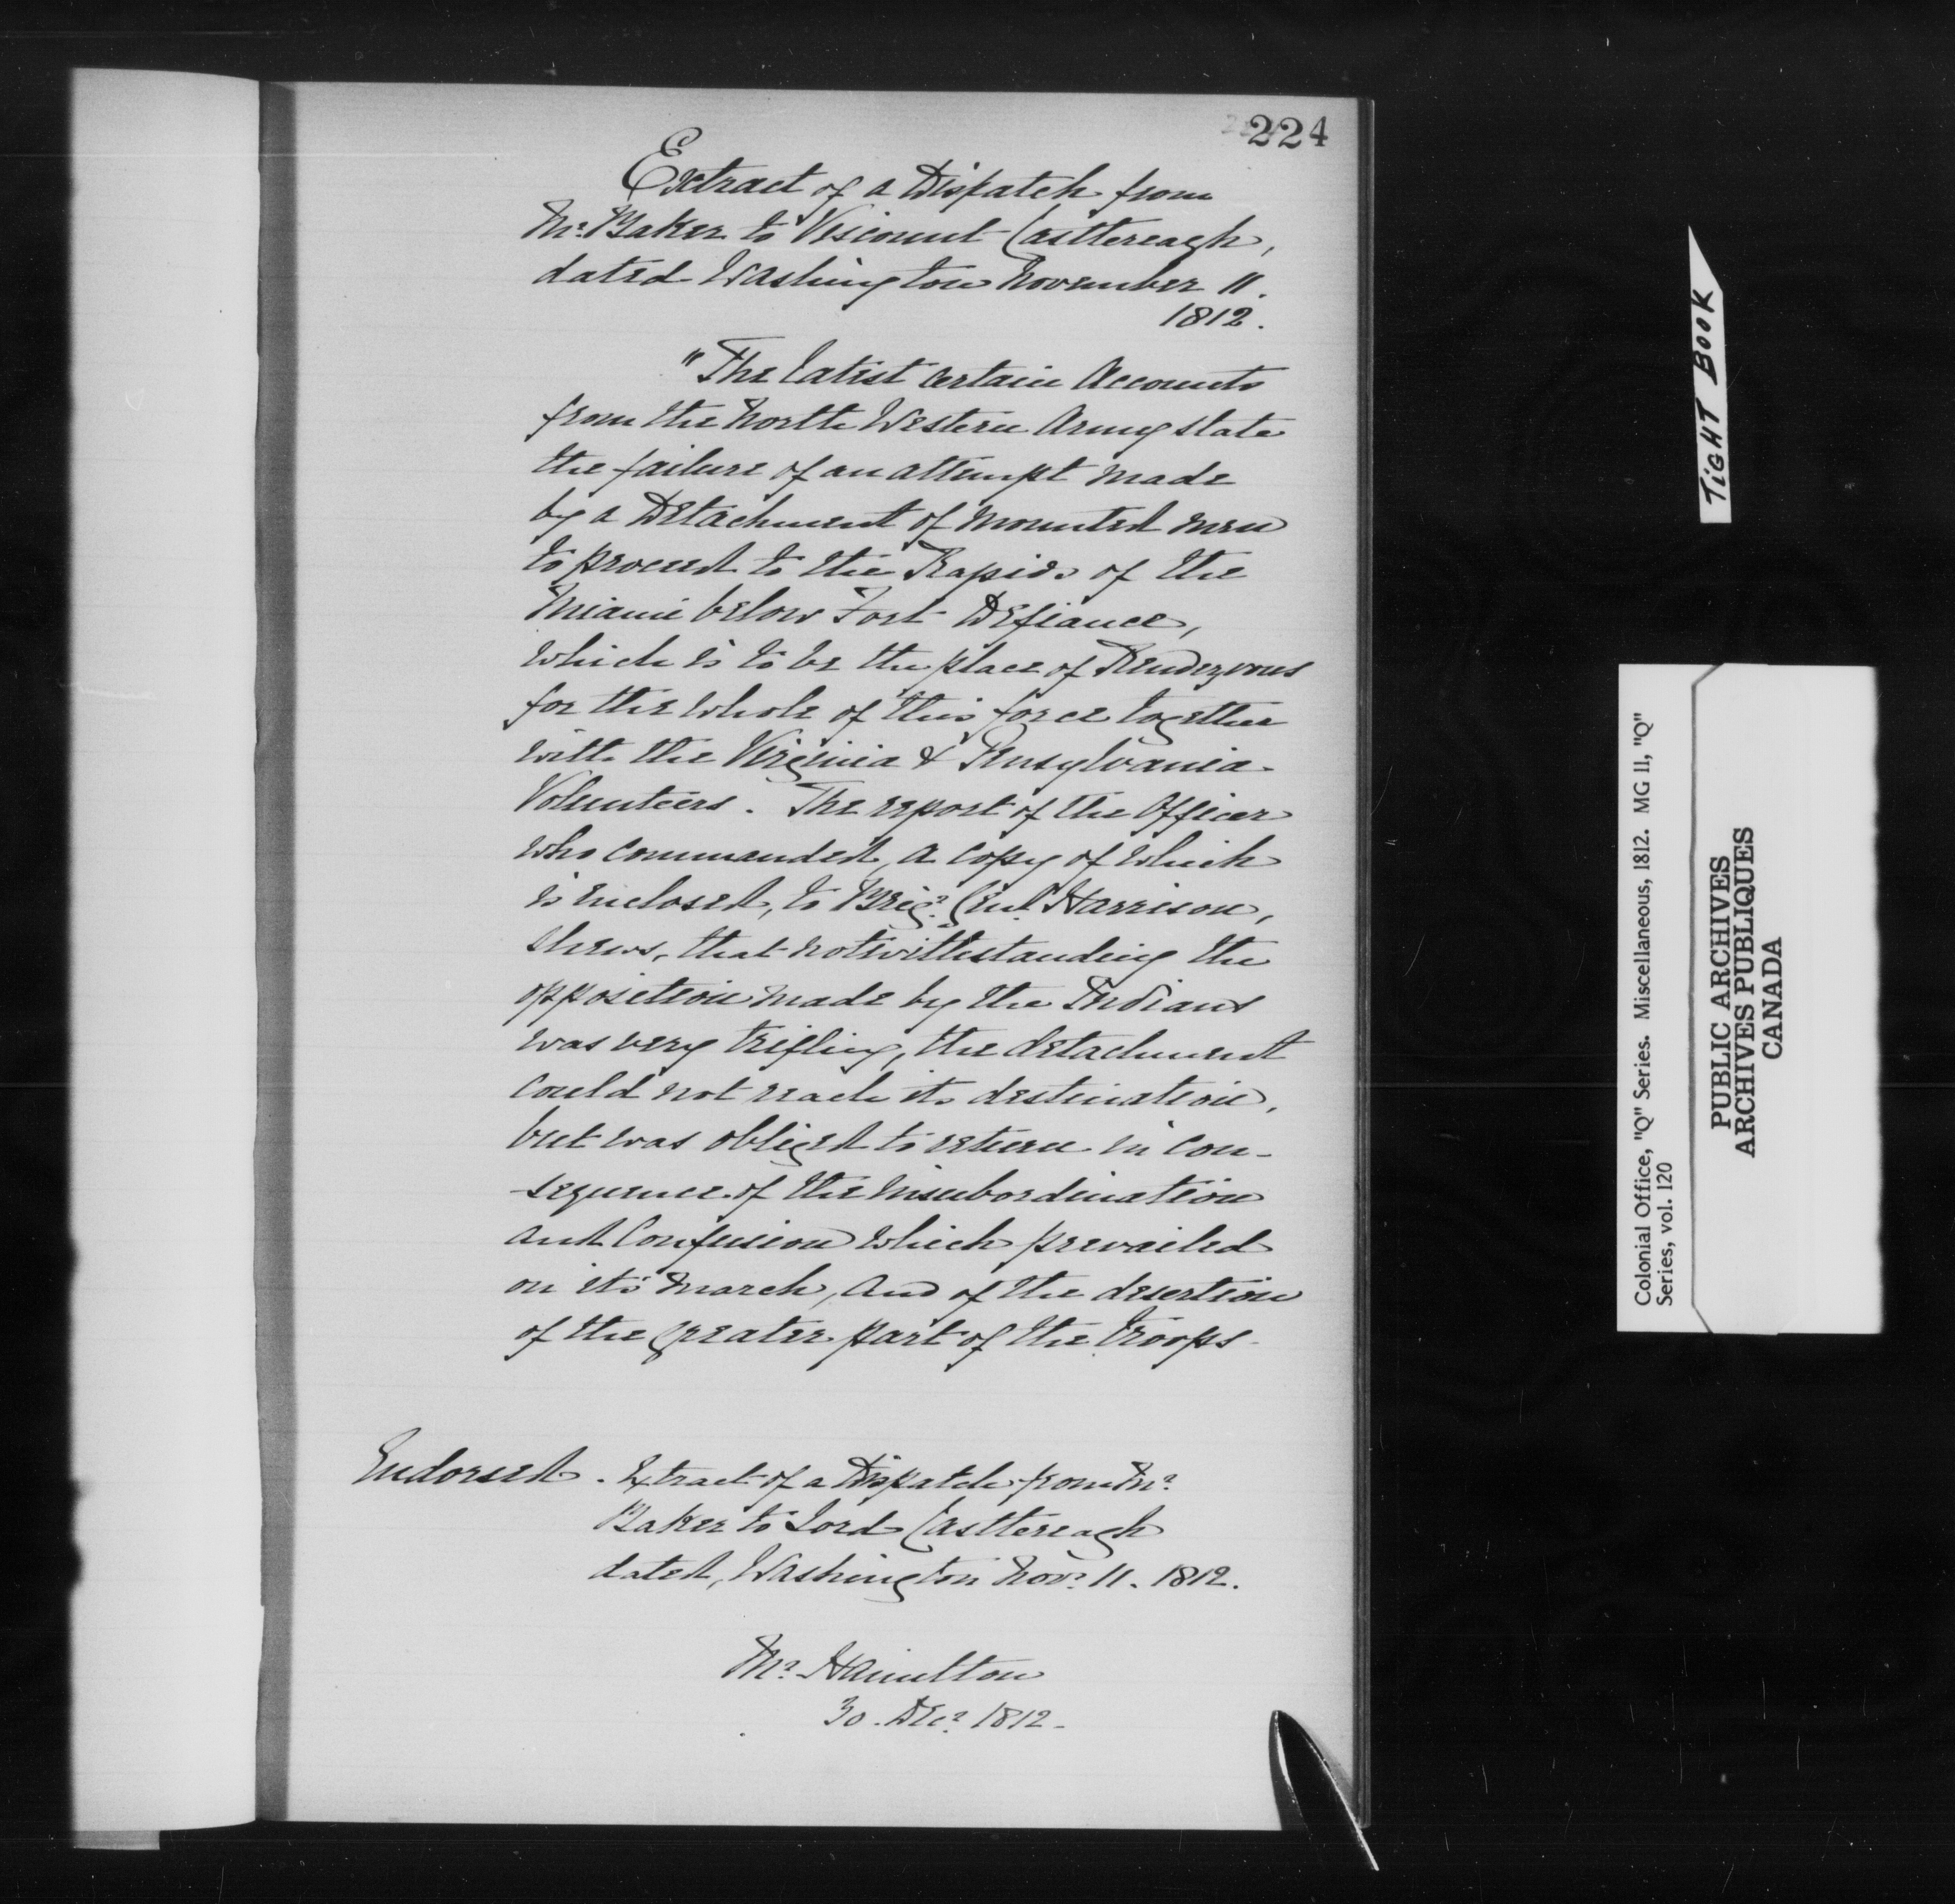 224
Extract of a Dispatch from
Mr. Baker to Viscount Castlereagh,
dated Washington November 11.
1812.
"The latest certain Accounts
from the North Western Army state
the failure of an attempt made
by a Detachment of mounted men
to proceed to the Rapids of the
Miami below Fort Defiance,
which is to be the place of Rendezvous
for the whole of this force together
with the Virginia & Pensylvania
Volunteers. The report of the Officer
who commanded, a copy of which
is inclosed, to Brigr. Genl. Harrison,
shews, that notwithstanding the
opposition made by the Indians
was very trifling, the detachment
could not reach its destination,
but was obliged to return in con-
-sequence of the insubordination
and Confusion which prevailed
on its march, and of the desertion
of the greater part of the troops.
Endorsed. Extract of a Dispatch from Mr.
Baker to Lord Castlereagh
dated, Washington Novr. 11. 1812.
Mr. Hamilton
30. Decr. 1812.
TIGHT BOOK
Colonial Office, "Q" Series. Miscellaneous, 1812. MG 11, "Q"
Series, vol. 120
PUBLIC ARCHIVES
ARCHIVES PUBLIQUES
CANADA